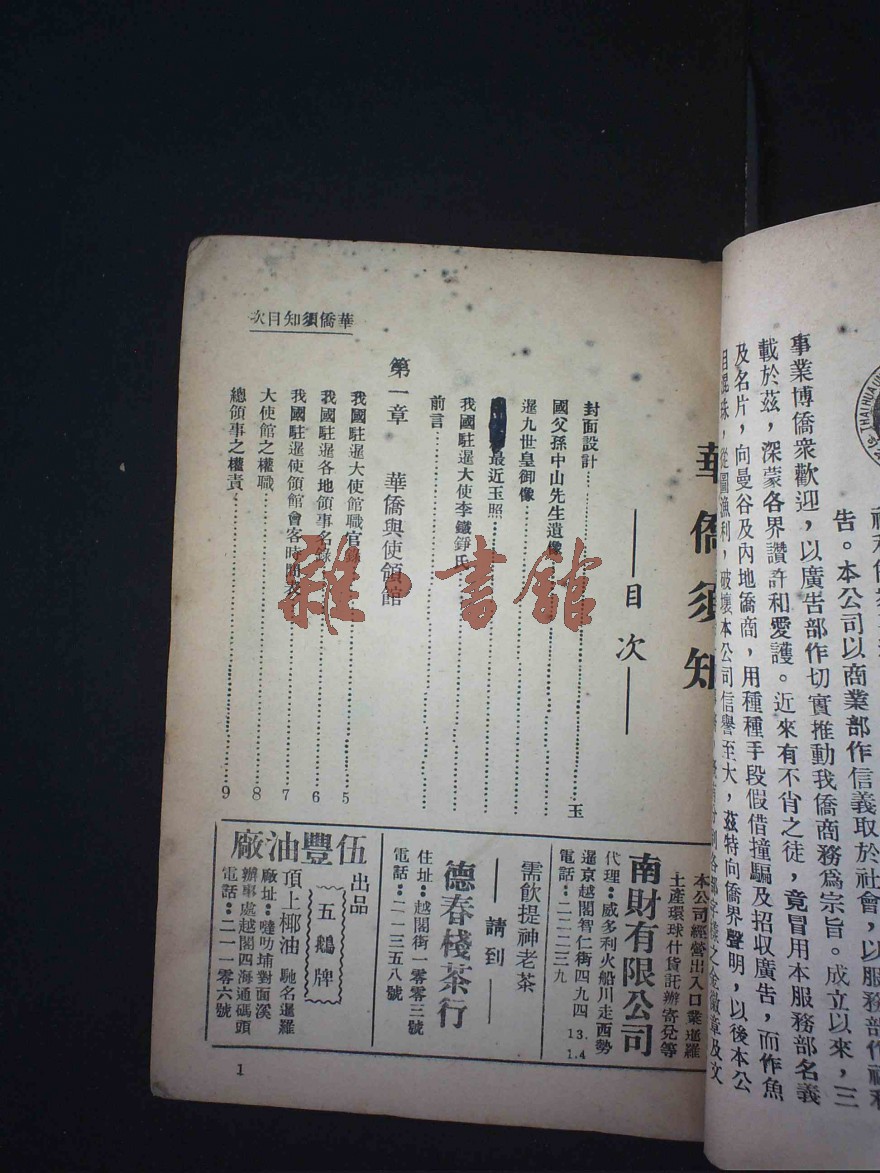 THAI HUA U
事業博僑衆歡迎，以廣告部作切實推動我僑商務爲宗旨。成立以來，三
告。本公司以商業部作信義取於社會，以服務部作福利
載於茲，深蒙各界讚許和愛護。近來有不肖之徒，竟冒用本服務部名義
及名片，向曼谷及內地僑商，用種種手段假借撞騙及招収廣告，而作魚
目混珠，從圖漁利，破壞本公司信譽至大，茲特向僑界聲明，以後本公
華僑須知
目次
封面設計 玉
國父孫中山先生遺像
暹九世皇御像
最近玉照
我國駐暹大使李鐵錚氏
前言
第一章　華僑與使領館
我國駐暹大使館職官錄 5
我國駐暹各地領事名錄 6
我國駐暹使領館會客時間表 7
大使館之權職 8
總領事之權責 9
華僑須知目次
本公司經營出入口業暹羅
土產環球什貨託辦寄兌等
南財有限公司
代理：威多利火船川走西勢
暹京越閣智仁街四九四 13.1.4
電話：二一二三九
需飲提神老茶
請到
德春棧茶行
住址：越閣街一零零三號
電話：二一三五八號
伍豐油廠
出品
五鵝牌
頂上椰油 馳名暹羅
廠址：噠叻埔對面溪
辦事處越閣四海通碼頭
電話：二一一零六號
1
雜·書館